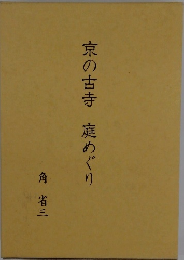 京の古寺 庭めぐり
角 省三